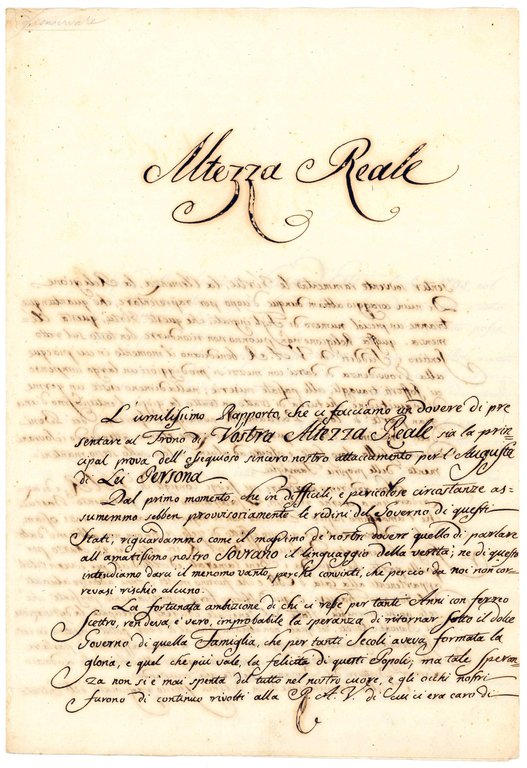 Altezza Reale
L'umilissimo Rapporto, che ci facciamo un dovere di pre
sentare al Trono di Vostra Altezza Reale sia la prin=
cipal prova dell'ossequioso sincero nostro attaccamento per l'Augusta
di Lei Persona.
Dal primo momento, che in difficili, e pericolose circostanze as=
sumemmo sebben provvisoriamente le redini del Governo di questi
Stati, riguardammo come il massimo de nostri doveri quello di parlare
all'amatissimo nostro Sovrano il linguaggio della verità; ne di questo
intendiamo darci il menomo vanto, perchè convinti, che perciò da noi non cor=
revasi rischio alcuno.
La fortunata ambizione di chi ci resse per tanti Anni con ferreo
Scettro, rendeva, è vero, improbabile la speranza di ritornar sotto il dolce
Governo di quella Famiglia, che per tanti Secoli aveva formata la
gloria, e quel che più vale, la felicità di questi Popoli, ma tale speran=
za non si è mai spenta del tutto nel nostro cuore, e gli occhi nostri
furono di continuo rivolti alla R. A. V. di cui ci era caro di